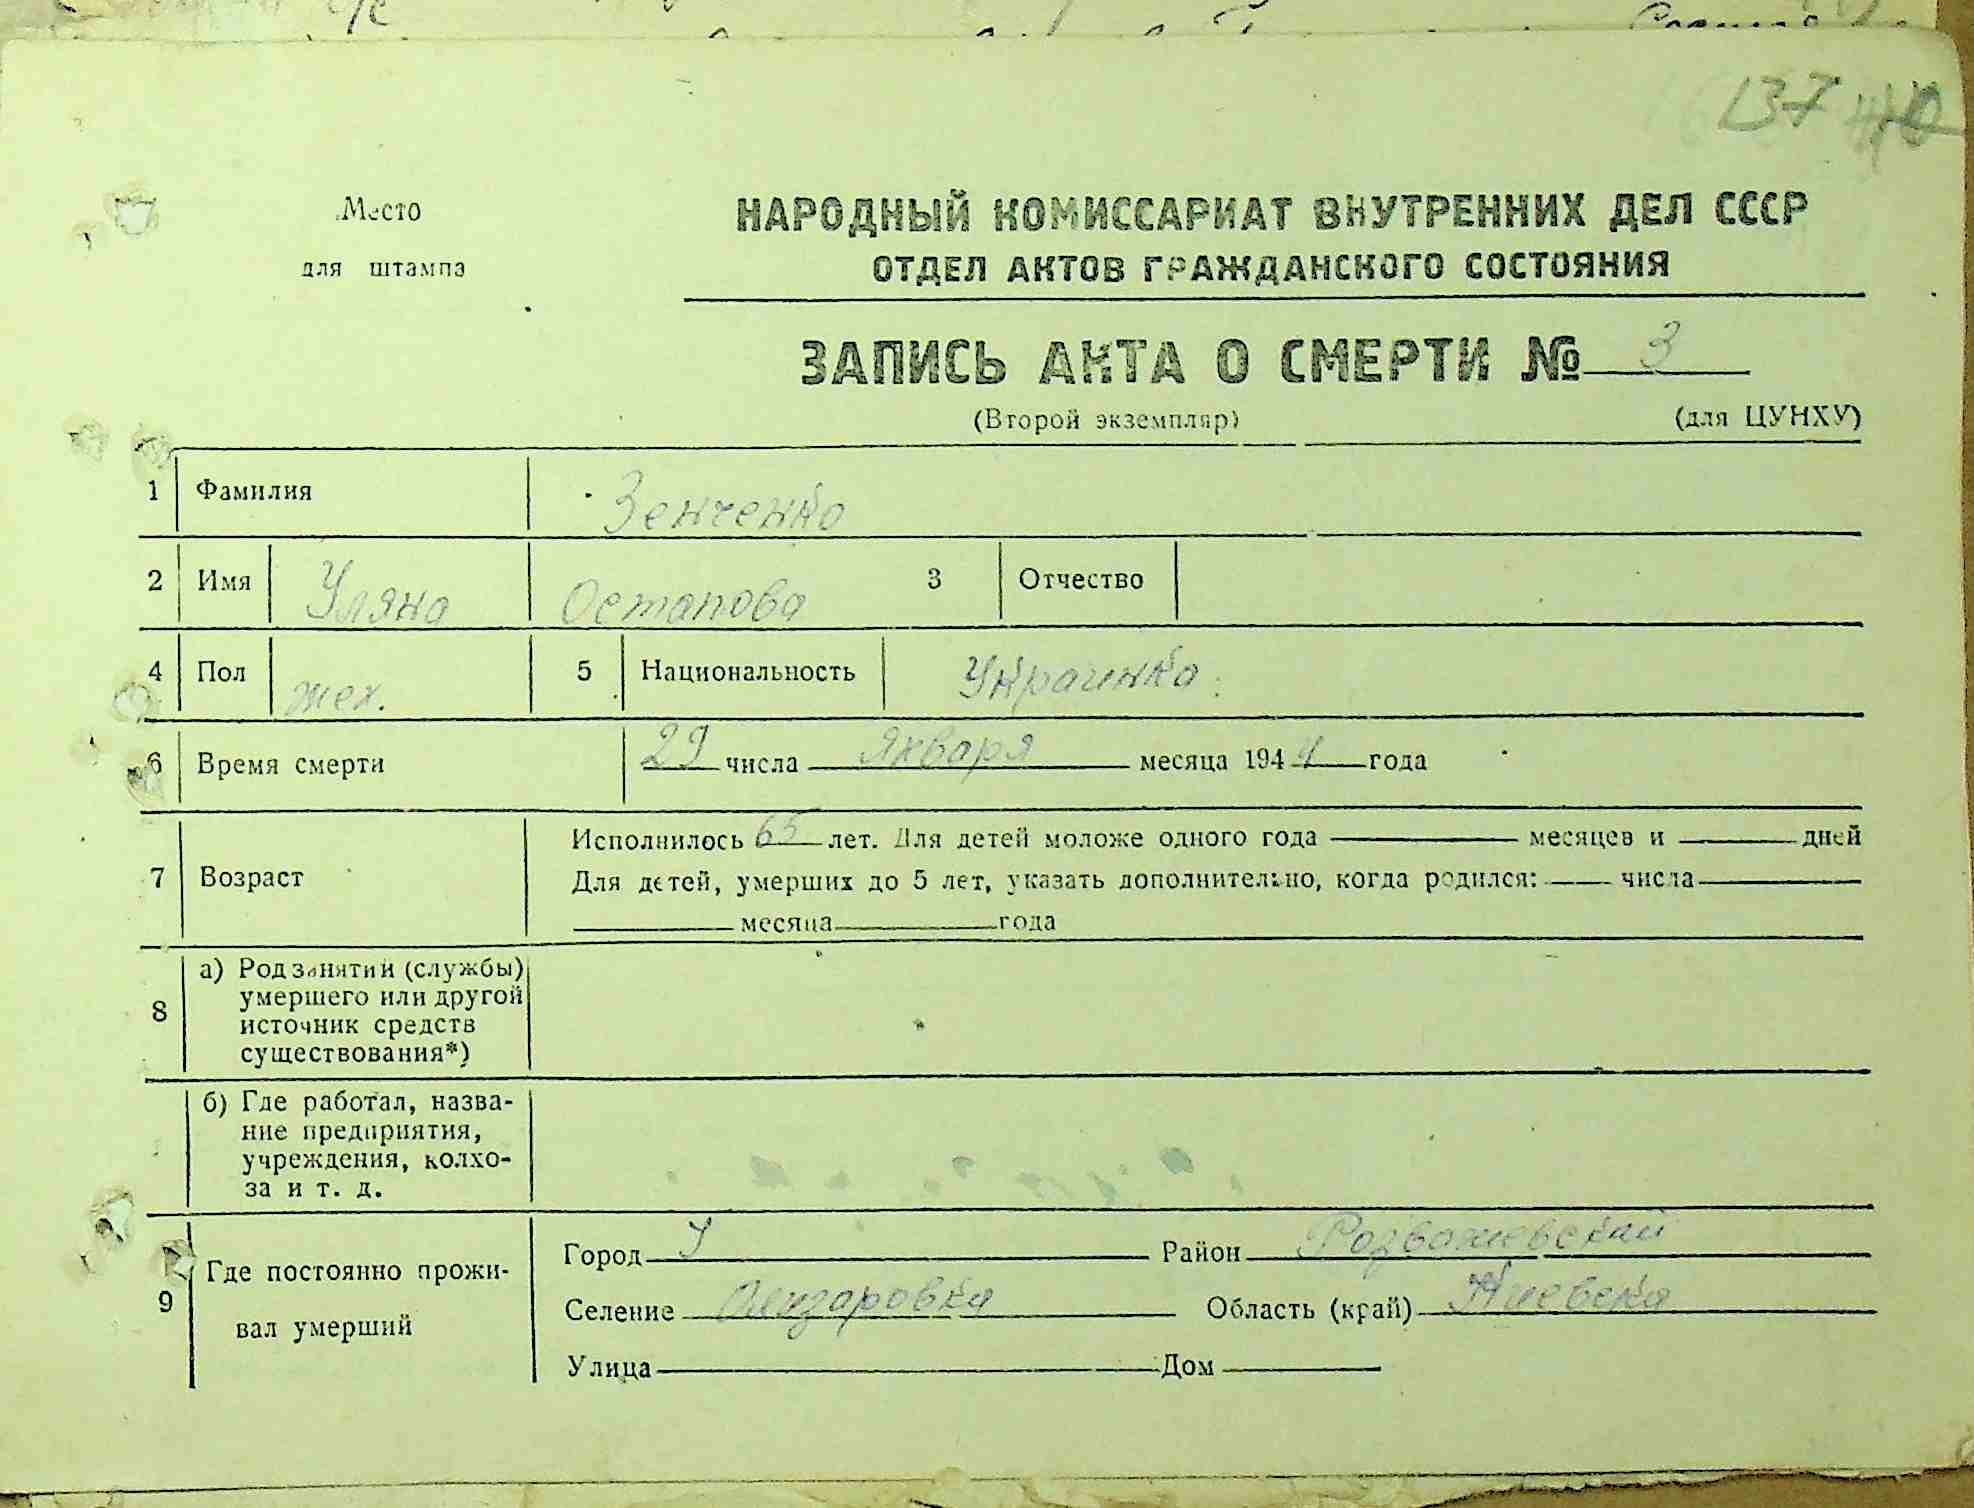 137
Место
для штампа
НАРОДНЫЙ КОМИССАРИАТ ВНУТРЕННИХ ДЕЛ СССР
ОТДЕЛ АКТОВ ГРАЖДАНСКОГО СОСТОЯНИЯ
ЗАПИСЬ АКТА О СМЕРТИ № 3
(Второй экземпляр) (для ЦУНХУ)
1 Фамилия Зенченко
2 Имя Уляна Остапова 3 Отчество
4 Пол жен. 5 Национальность Украинка
6 Время смерти 29 числа Января месяца 1944 года
7 Возраст
Исполнилось 65 лет. Для детей моложе одного года месяцев и дней
Для детей, умерших до 5 лет, указать дополнительно, когда родился: числа
месяца года
8 а) Род занятий (службы)
умершего или другой
источник средств
существования*)
б) Где работал, назва-
ние предприятия,
учреждения, колхо-
за и т. д.
9 Где постоянно прожи-
вал умерший
Город Район Розважевский
Селение Олизаровка Область (край) Киевска
Улица Дом